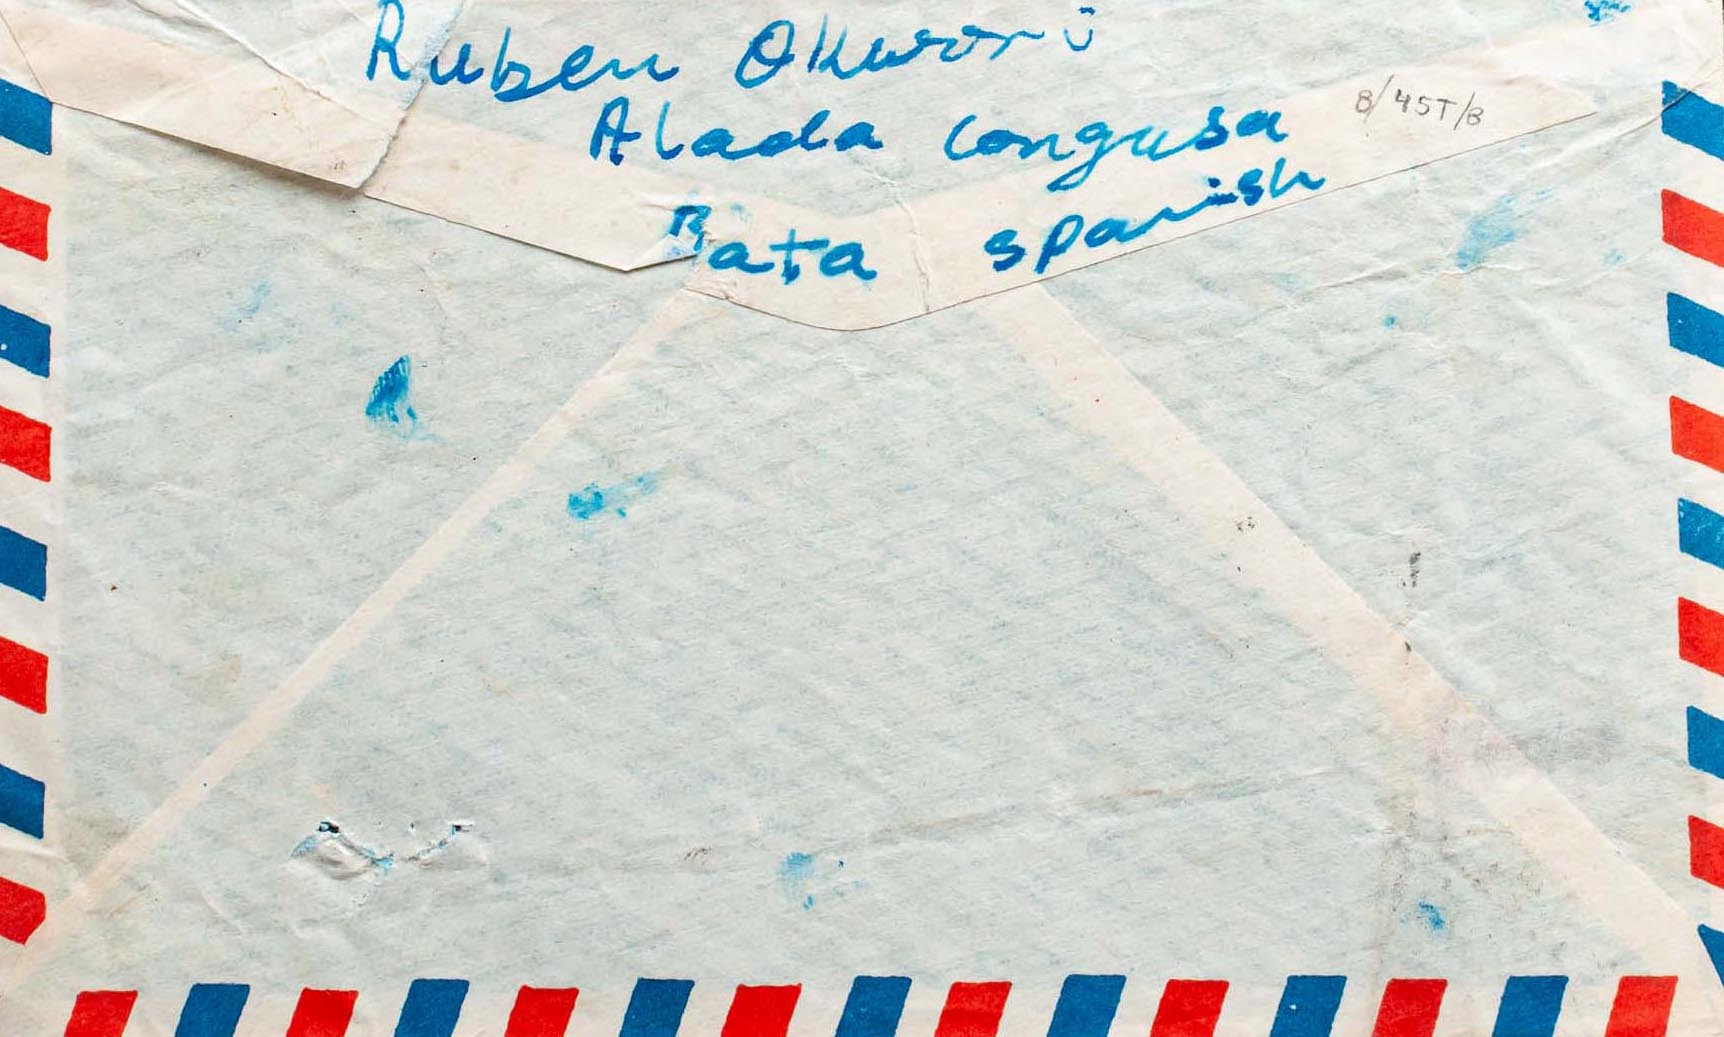 Ruben Okwori
Alada congusa
8/45T/B
Bata spanish